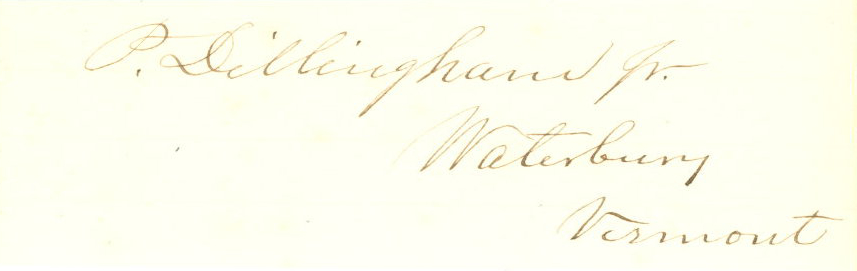 P. Dillingham Jr.
Waterbury
Vermont